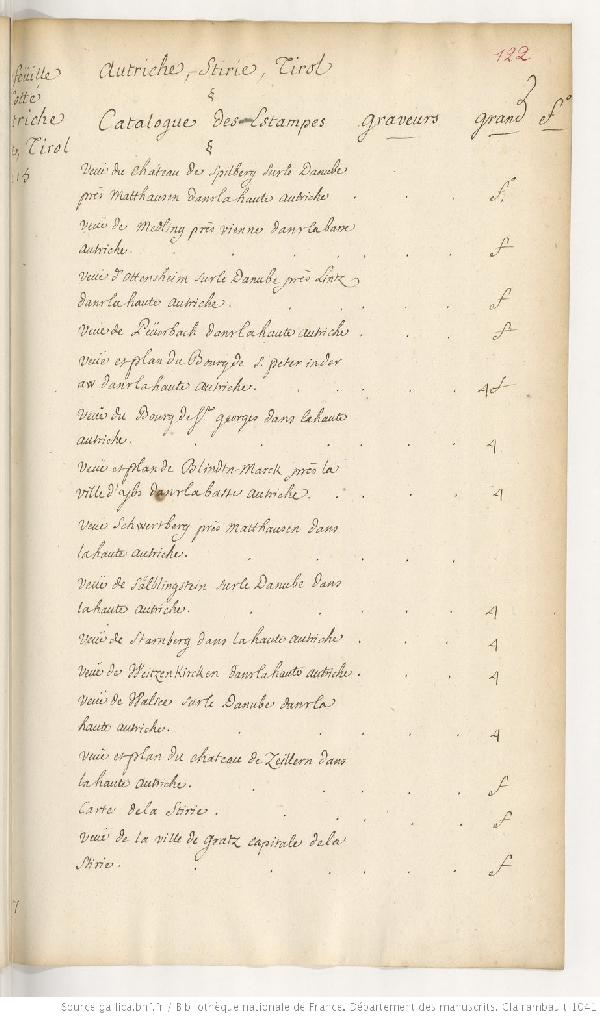 122
feuille
Cotté
triche
Tirol
Autriche, Stirie, Tirol
§
Catalogue des Estampes graveurs grand f°
§
Veüe du chateau de Spilberg sur le Danube
près Matthausen dans la haute autriche . . . f°
Veüe de Medling près vienne dans la basse
autriche. . . . . . f
Veüe d'Ottensheim sur le Danube près Lintz
dans la haute autriche. . . . . f
Veüe de Peürbach dans la haute autriche . . . f
Veüe et plan du Bourg de S. peter in der
aw dans la haute autriche. . . . . 4 f
Veüe du Bourg de St. georges dans la haute
autriche. . . . . . 4
Veüe et plan de Blindtn-Marck près la
ville d'ybs dans la basse autriche. . . . 4
Veüe Schwertberg près Matthausen dans
la haute autriche. . . . .
Veüe de Sälblingstein sur le Danube dans
la haute autriche. . . . . 4
Veüe de Starnberg dans la haute autriche . . . 4
Veüe de Weitzenkircken dans la haute autriche . . . 4
Veüe de Walsee sur le Danube dans la
haute autriche. . . . . 4
Veüe et plan du chateau de Zeillern dans
la haute autriche. . . . . f
Carte de la Stirie. . . . . f
Veüe de la ville de gratz capitale de la
Stirie. . . . . . f
Source gallica.bnf.fr / Bibliothèque nationale de France. Département des manuscrits. Clairambault 1041